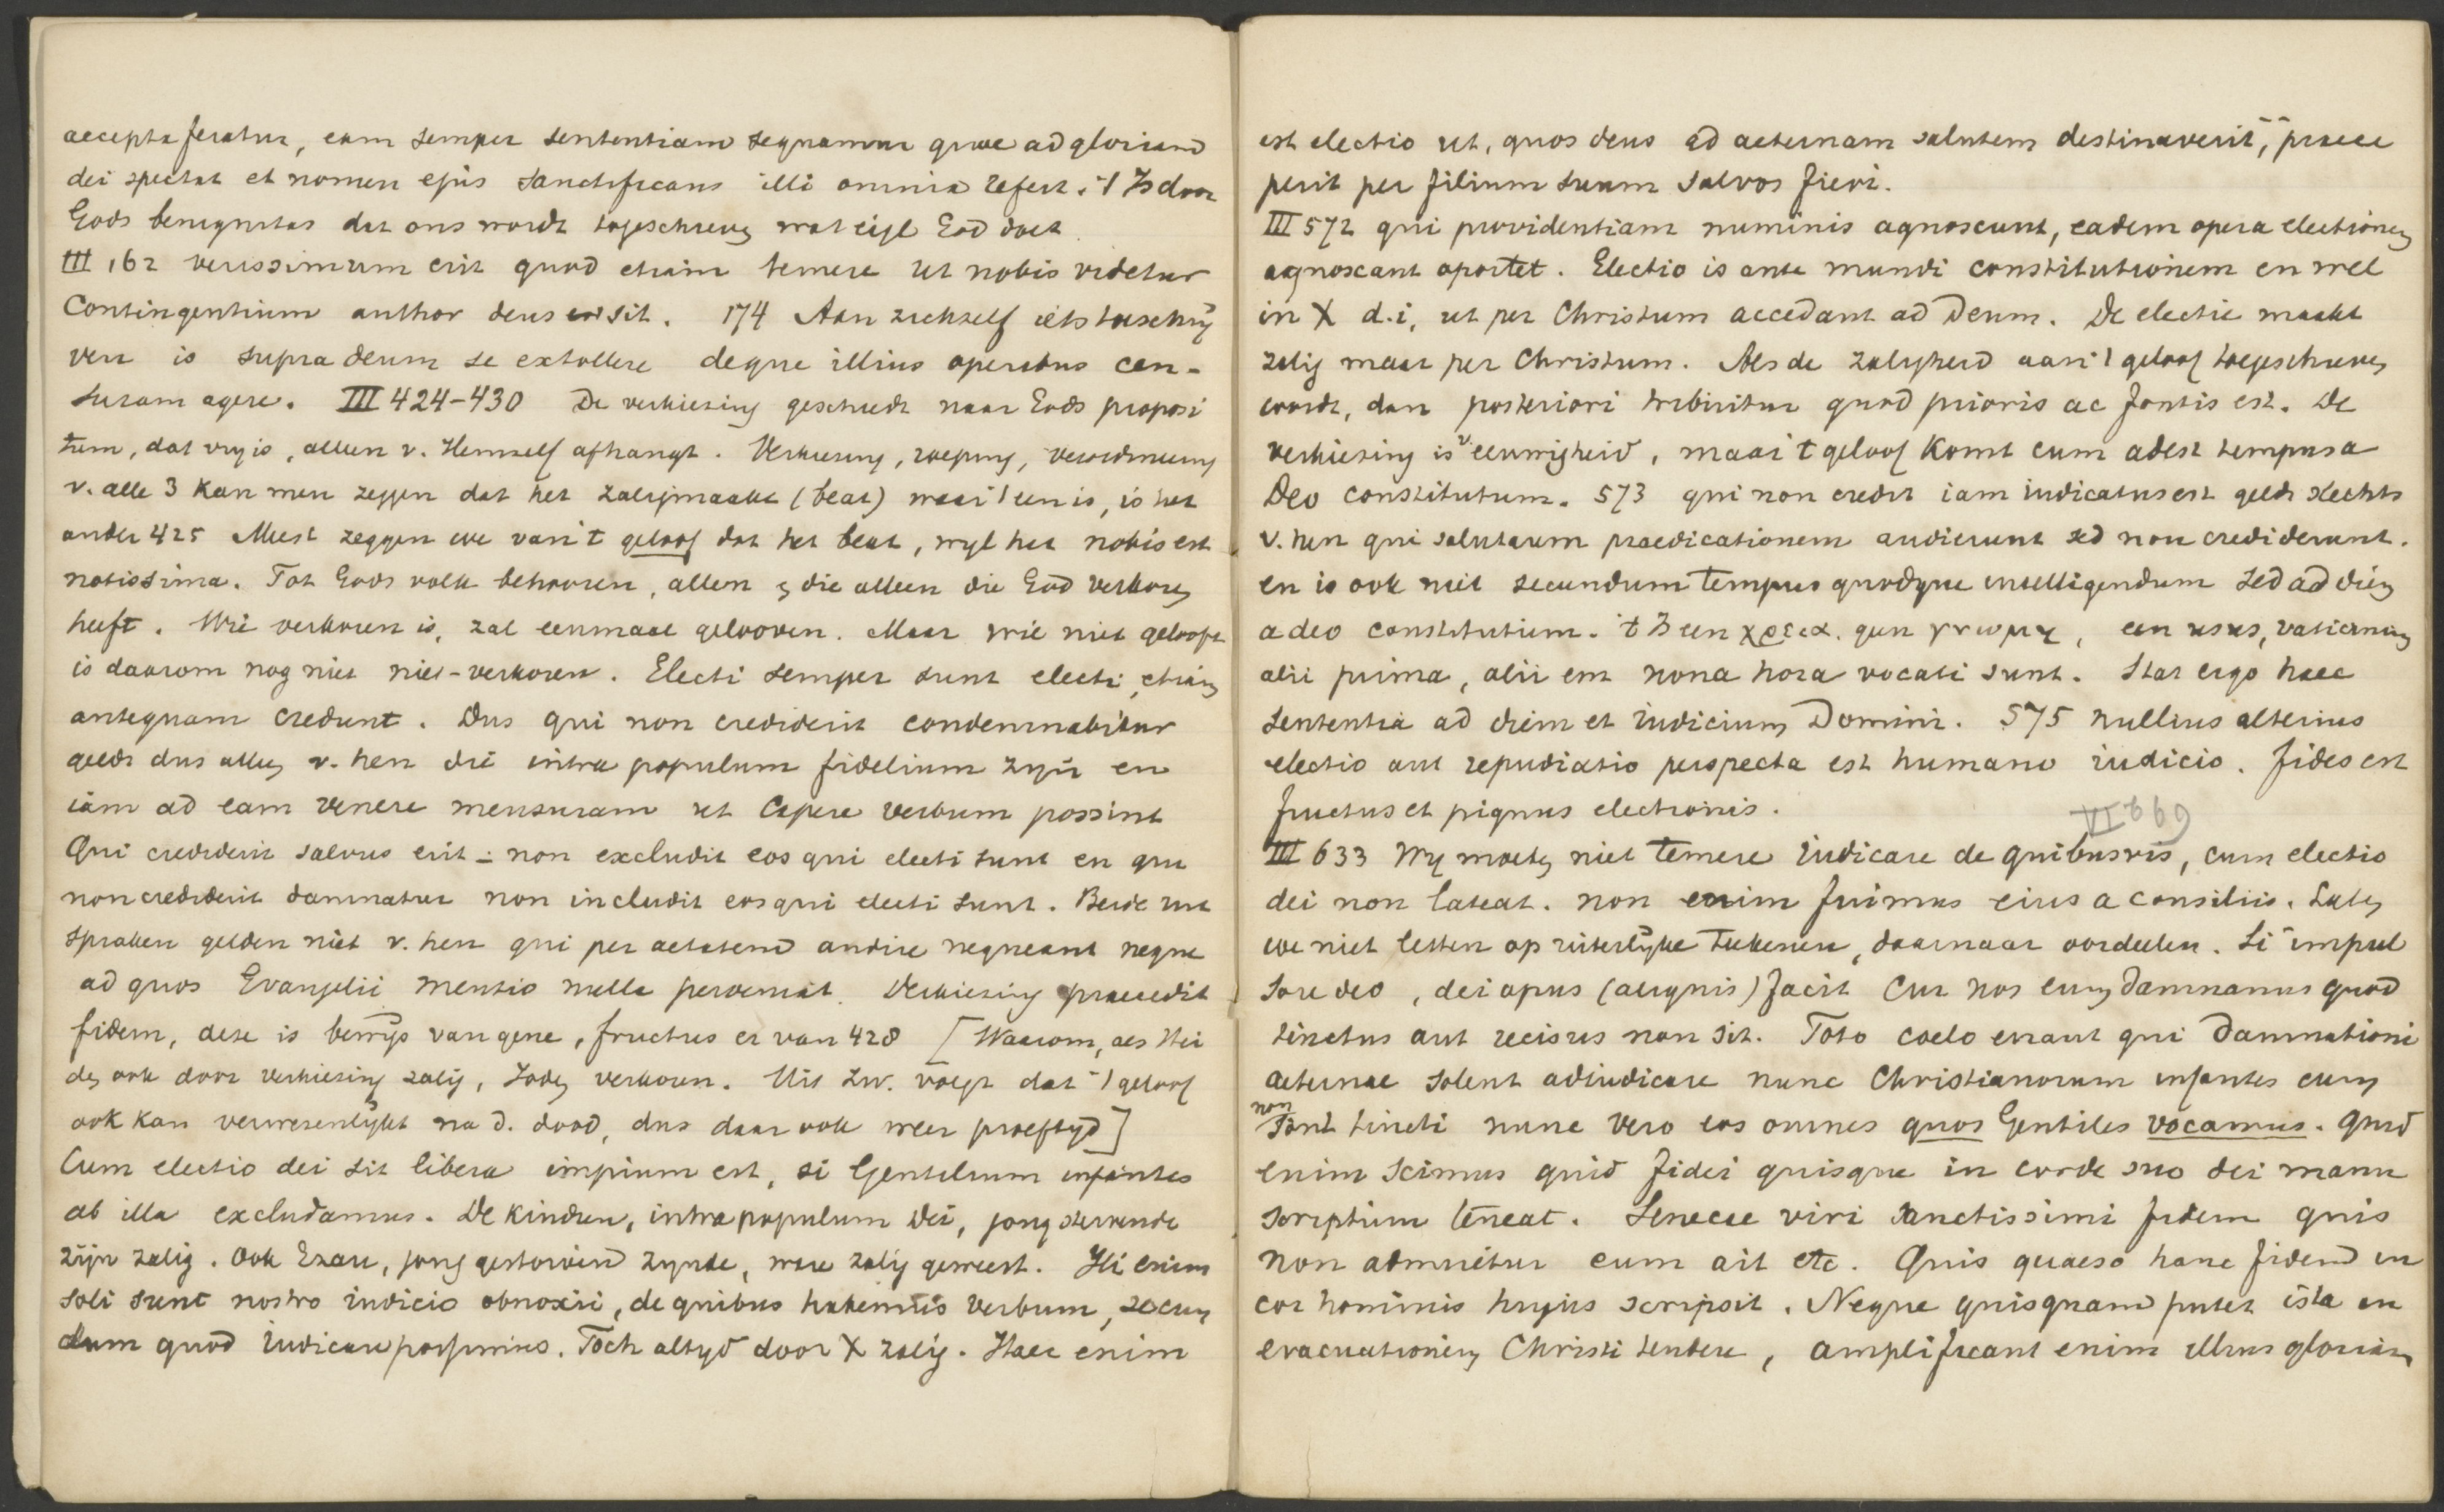 accepta feratur, eam semper sententiam sequamur quae ad gloriam
dei spectat et nomen ejus sanctificans illi omnia refert. 't Is door
Gods benignitas dat ons wordt toegeschreven wat eigl God doet.
III 162 verissimum erit quod etiam temere ut nobis videtur
Contingentium author deus sit. 174 Aan zichzelf iets toeschrij
ven is supra deum se extollere deque illius operibus cen-
suram agere. III 424-430 De verkiezing geschiedt naar Gods proposi
tum, dat vrij is, alleen v. Hemself afhangt. Verkiezing, roeping, verordineering
v. alle 3 kan men zeggen dat het zaligmaakt (beat) waar 't een is, is het
ander 425 Meest zeggen we van 't geloof dat het beat, wijl het nobis est
notissima. Tot Gods volk behooren, allen en die alleen die God verkoren
heeft. Wie verkoren is, zal eenmaal gelooven. Maar wie niet gelooft
is daarom nog niet niet-verkoren. Electi semper sunt electi, etiam
antequam credunt. Dus qui non crediderit condemnabitur
geldt dus alleen v. hen die intra populum fidelium zijn en
iam ad eam venere mensuram ut capere verbum possint
Qui crediderit salvus erit - non excludit eos qui electi sunt en qui
non crediderit damnatur non includit eos qui electi sunt. Beide uit
spraken gelden niet v. hen qui per aetatem audire nequeant neque
ad quos Evangelii mentio nulla pervenit. Verkiezing praecedit
fidem, deze is bewijs van gene, fructus er van 428 [Waarom, als Hei
den ook door verkiezing zalig, Joden verkoren. Uit Zw. volgt dat 't geloof
ook kan verwezenlijkt na d. dood, dus daar ook weer proeftijd]
Cum electio dei sit libera impium est, si Gentilium infantes
ab illa excludamus. De kinderen, intra populum Dei, jong stervende
zijn zalig. Ook Ezau, jong gestorven zynde, ware zalig geweest. Hi enim
soli sunt nostro iudicio obnoxii, de quibus habemus verbum, secun
dum quod iudicare possumus. Toch altyd door X zalig. Haec enim
est electio ut, quos deus ad aeternam salutem destinaverit, praece
perit per filium suum salvos fieri.
III 572 qui providentiam numinis agnoscunt, eadem opera electionem
agnoscant oportet. Electio is ante mundi constitutionem en wel
in X d.i, ut per Christum accedant ad Deum. De electie maakt
zalig maar per Christum. Als de zaligheid aan 't geloof toegeschreven
wordt, dan posteriori tribuitur quod prioris ac fontis est. De
verkiezing is v. eeuwigheid, maar 't geloof komt cum adest tempus a
Deo constitutum. 573 qui non credit iam iudicatus est geldt slechts
v. hen qui salutarem praedicationem audierunt sed non crediderunt.
en is ook niet secundum tempus quodque intelligendum sed ad diem
a deo constitutum. 't Is een χρεια. geen γνωμη, een usus, vaticinium
alii prima, alii em nona hora vocati sunt. Stat ergo haec
sententia ad diem et iudicium Domini. 575 nullius alterius
electio aut repudiatio perspecta est humano iudicio. fides est
fructus et pignus electionis.
VI b 69
III 633 Wy moeten niet temere iudicare de quibusvis, cum electio
dei non lateat. non enim fuimus eius a consiliis. Laten
we niet letten op uiterlyke teekenen, daarnaar oordeelen. Si impul
sore deo, dei opus (aliquis) facit cur nos eum damnamus quod
tinctus aut recisus non sit. Toto coelo errant qui damnationi
aeternae solent adiudicare nunc Christianorum infantes cum
non sint tincti nunc vero eos omnes quos Gentiles vocamus. Quid
enim scimus quid fidei quisque in corde suo dei manu
scriptum teneat. Senecae viri sanctissimi fidem quis
non admiretur cum ait etc. Quis quaeso hanc fidem in
cor hominis hujus scripsit. Neque quisquam putet ista in
evacuationem Christi tendere, amplificant enim illius gloriam